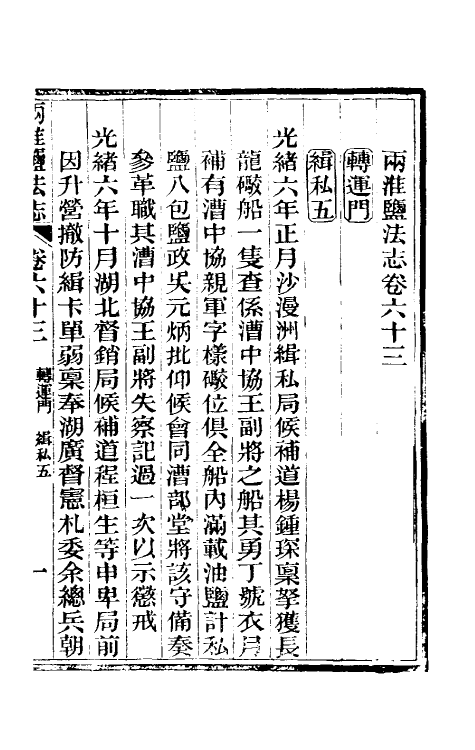 兩淮鹽法志卷六十三
轉運門
緝私五
光緒六年正月沙漫洲緝私局候補道楊鍾琛稟拏獲長
龍礮船一隻查係漕中協王副將之船其勇丁號衣肩
補有漕中協親軍字樣礮位俱全船內滿載油鹽計私
鹽八包鹽政吳元炳批仰候會同漕部堂將該守備奏
參革職其漕中協王副將失察記過一次以示懲戒
光緒六年十月湖北督銷局候補道程桓生等申卑局前
因升營撤防緝卡單弱稟奉湖廣督憲札委余總兵朝
兩淮鹽法志 卷六十三 轉運門 緝私五 一